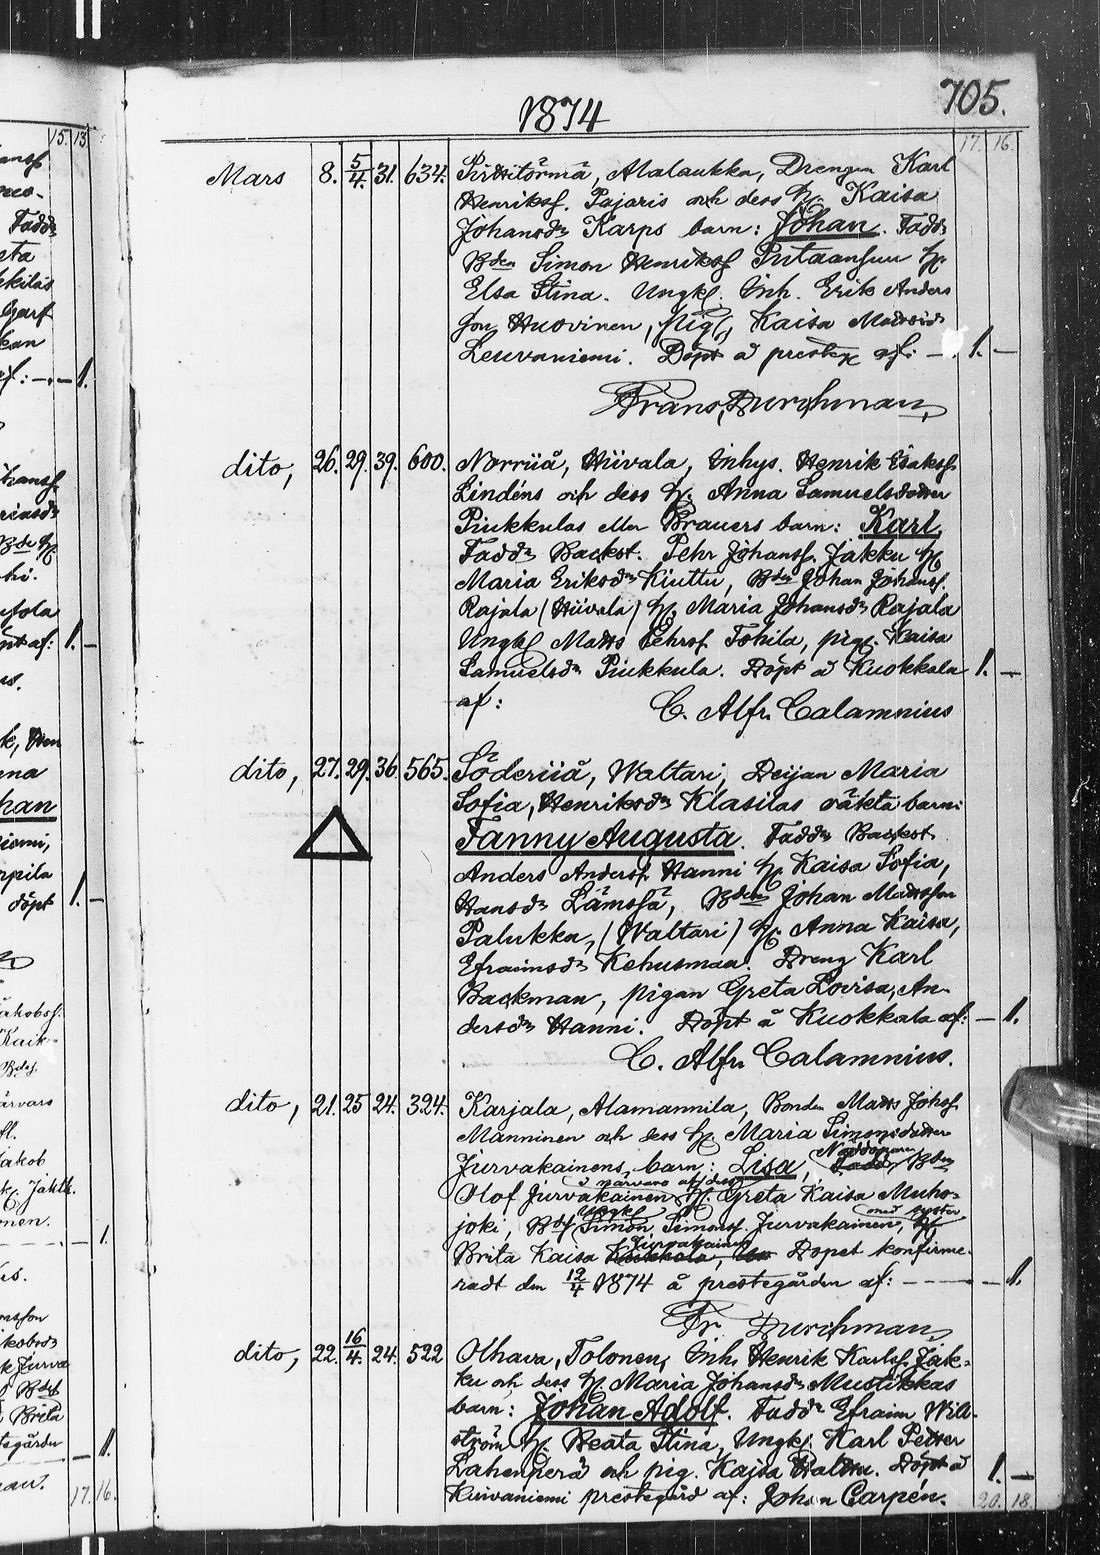 705.
1874
17. 16.
Mars 8. 5/4. 31. 634. Pirttitörmä, Alalaukka, Drengen Karl
Henrikss. Pajaris och dess h. Kaisa
Johansdr Karps barn: Johan. Fadd:
Bden Simon Henrikss Putaansuu h.
Elsa Stina. Ungk. Inh. Erik Anders
son Huovinen, pig. Kaisa Mattsdr
Leuvaniemi. Döpt å prestg. af: — 1. —
Frans Durchman
dito, 26. 29. 39. 600. Norriiå, Hiivala, Inhys. Henrik Esakss
Lindéns och dess h. Anna Samuelsdotter
Piukkulas eller Brauers barn: Karl,
Faddr Backst. Pehr Johanss. Jakku h.
Maria Eriksdr Kiuttu, Bden Johan Johanss.
Rajala (Hiivala) h. Maria Johansdr Rajala
Ungk Matts Pehrss. Tohila, pig. Kaisa
Samuelsdr Piukkula. Döpt å Kuokkala 1. —
af: C. Alfr. Calamnius
dito, 27. 29. 36. 565. Söderiiå, Waltari, Deijan Maria
Sofia, Henriksdr Klasilas oäkta barn:
Fanny Augusta. Faddr Backst.
Anders Anderss. Hanni h. Kaisa Sofia,
Hansdr Lämsså, Bden Johan Mattsson
Palukka, (Waltari) h. Anna Kaisa,
Efraimsdr Kehusmaa. Dreng Karl
Backman, pigan Greta Lovisa, An-
dersdr Hanni. Döpt å Kuokkala af: — 1.
C. Alfr. Calamnius.
dito, 21. 25 24. 324. Karjala, Alamannila, Bonden Matts Johss
Manninen och dess h. Maria Simonsdotter
Jurvakainens barn: Lisa, Nöddöpare Bden
Olof Jurvakainen i närvaro af dess h. Greta Kaisa Muho-
joki, Bdss Ungk Simon Simonss. Jurvakainen, med syster
Brita Kaisa Jurvakainen Döpet konfirme-
radt den 12/4 1874 å prestegården af: — — 1.
Fr. Durchman
dito, 22. 16/4. 24. 522 Olhava, Tolonen, Inh. Henrik Karlss. Jak-
ku och dess h. Maria Johansdr Mustikkas
barn: Johan Adolf. Faddr Efraim Wik-
ström h. Beata Stina, Ungk. Karl Petter
Lahenperä och pig. Kajsa Haltu. Döpt å 1. —
Kuivaniemi prestegård af: Johan Carpén.
20. 18.